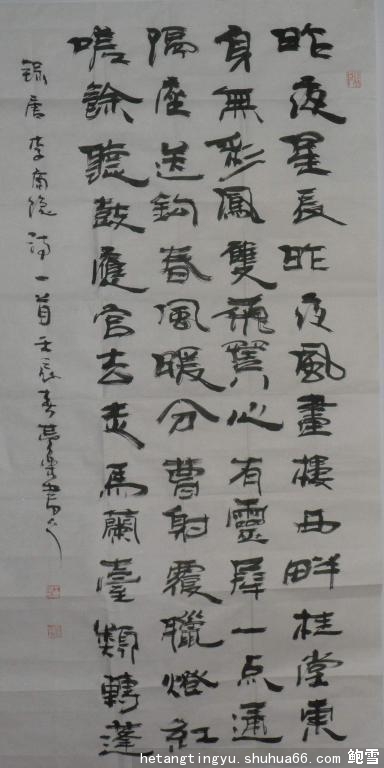 昨夜星辰昨夜風畫樓西畔桂堂東
身無彩鳳雙飛翼心有靈犀一点通
隔座送鈎春風暖分曹射覆臘燈紅
嗟餘聽鼓應官去走馬蘭臺類轉蓬
錄唐李商隐詩一首壬辰春
hetangtingyu.shuhua66.com/ 鲍雪